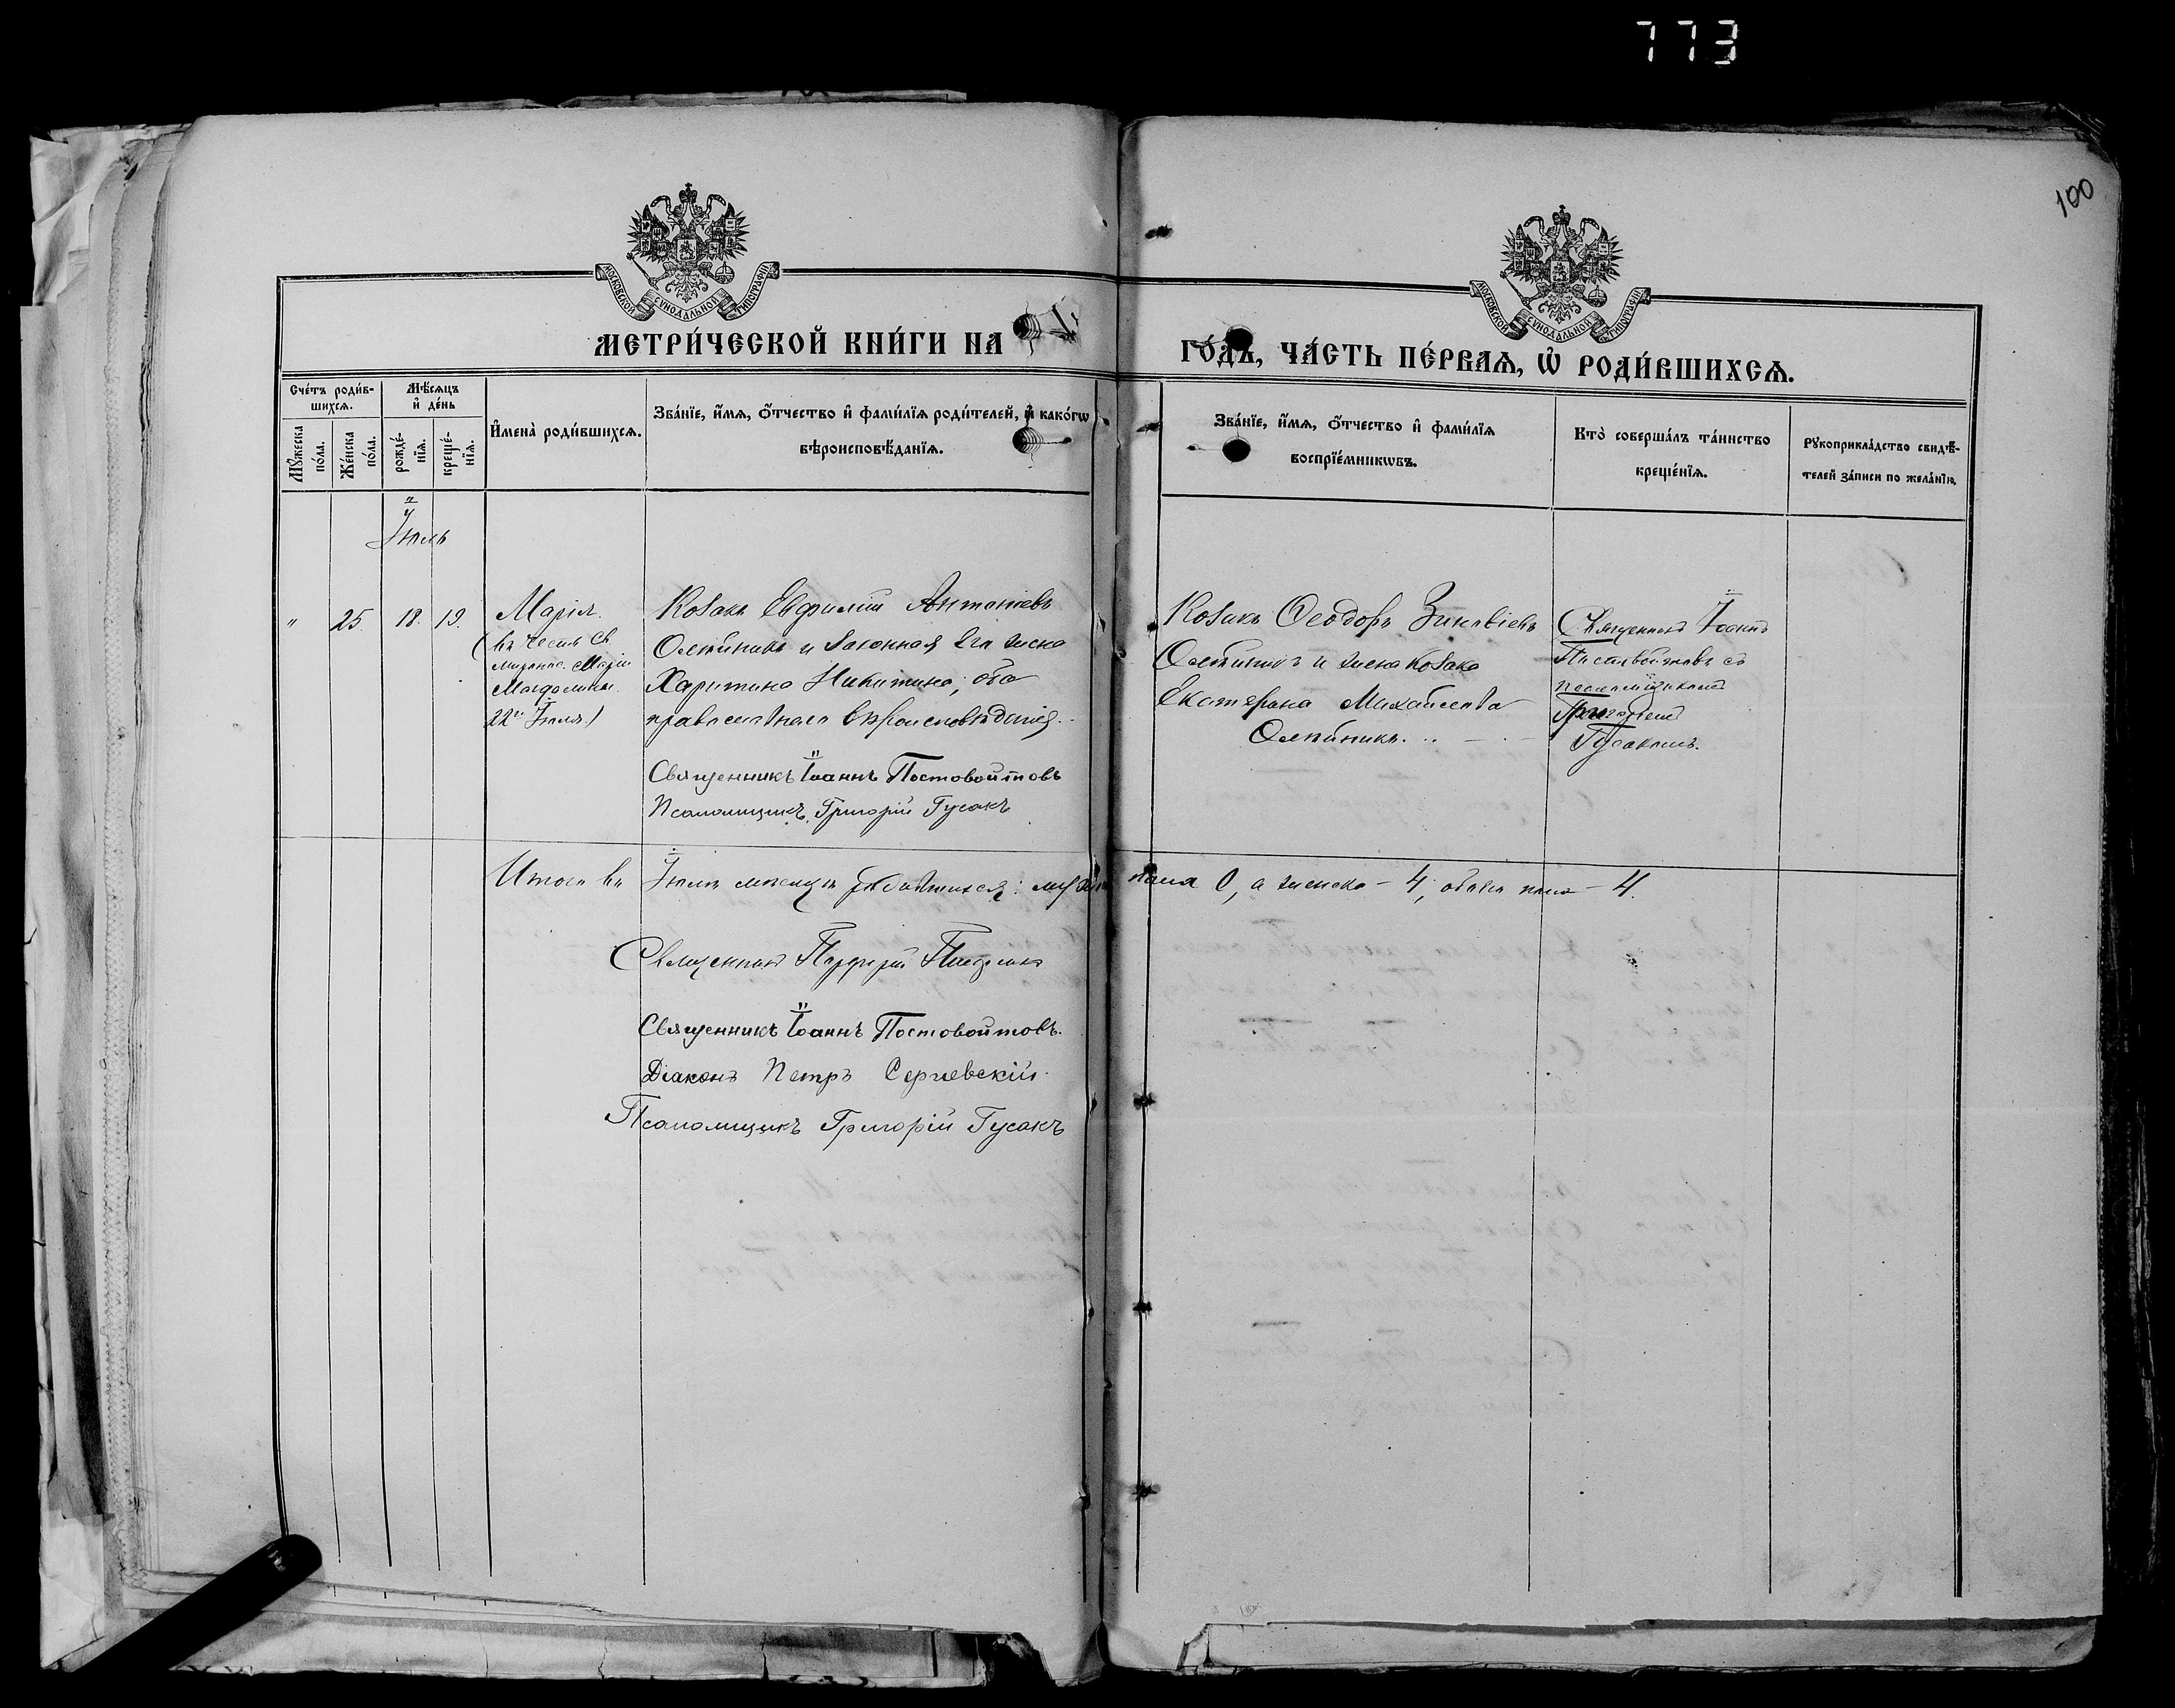 773
100
МОСКОВСКОЙ СѴНОДАЛЬНОЙ ТИПОГРАФІИ
МОСКОВСКОЙ СѴНОДАЛЬНОЙ ТИПОГРАФІИ
МЕТРИ́ЧЕСКОЙ КНИ́ГИ НА
ГО́ДЪ, ЧА́СТЬ ПЕ́РВАѦ, Ѡ҆ РОДИ́ВШИХСѦ.
Сче́тъ роди́в-
шихсѧ.
Мѣ́сѧцъ
и҆ де́нь
Мꙋ́жеска
по́ла.
Же́нска
по́ла.
рожде́-
нїѧ.
креще́-
нїѧ.
И҆мена̀ роди́вшихсѧ.
Зва́нїе, и҆́мѧ, ѻ҆́тчество и҆ фами́лїѧ роди́телей, и҆ како́гѡ
вѣроисповѣ́данїѧ.
Зва́нїе, и҆́мѧ, ѻ҆́тчество и҆ фами́лїѧ
воспрїе́мникѡвъ.
Кто̀ соверша́лъ та́инство
креще́нїѧ.
Рꙋкоприкла́дство свидѣ́-
телей за́писи по жела́нїю.
Іюль
" 25. 18. 19.
Марія
(въ честь Св.
мѵронос. Маріи
Магдалины.
22го Іюля)
Козакъ Евфимій Антоніевъ
Олѣйникъ и законная его жена
Харитина Никитина, оба
православнаго вѣроисповѣданія.
Священникъ Іоаннъ Постовойтовъ
Псаломщикъ Григорій Гусакъ
Козакъ Ѳеодоръ Зиновіевъ
Олѣйникъ и жена козака
Екатерина Михайлова
Олѣйникъ.
Священникъ Іоаннъ
Постовойтовъ съ
псаломщикомъ
Григоріемъ
Гусакомъ.
Итого въ Іюлѣ мѣсяцѣ родившихся: муж. пола 0, а женска - 4, обоего пола - 4.
Священникъ Порфирій
Священникъ Іоаннъ Постовойтовъ.
Діаконъ Петръ Сергіевскій
Псаломщикъ Григорій Гусакъ